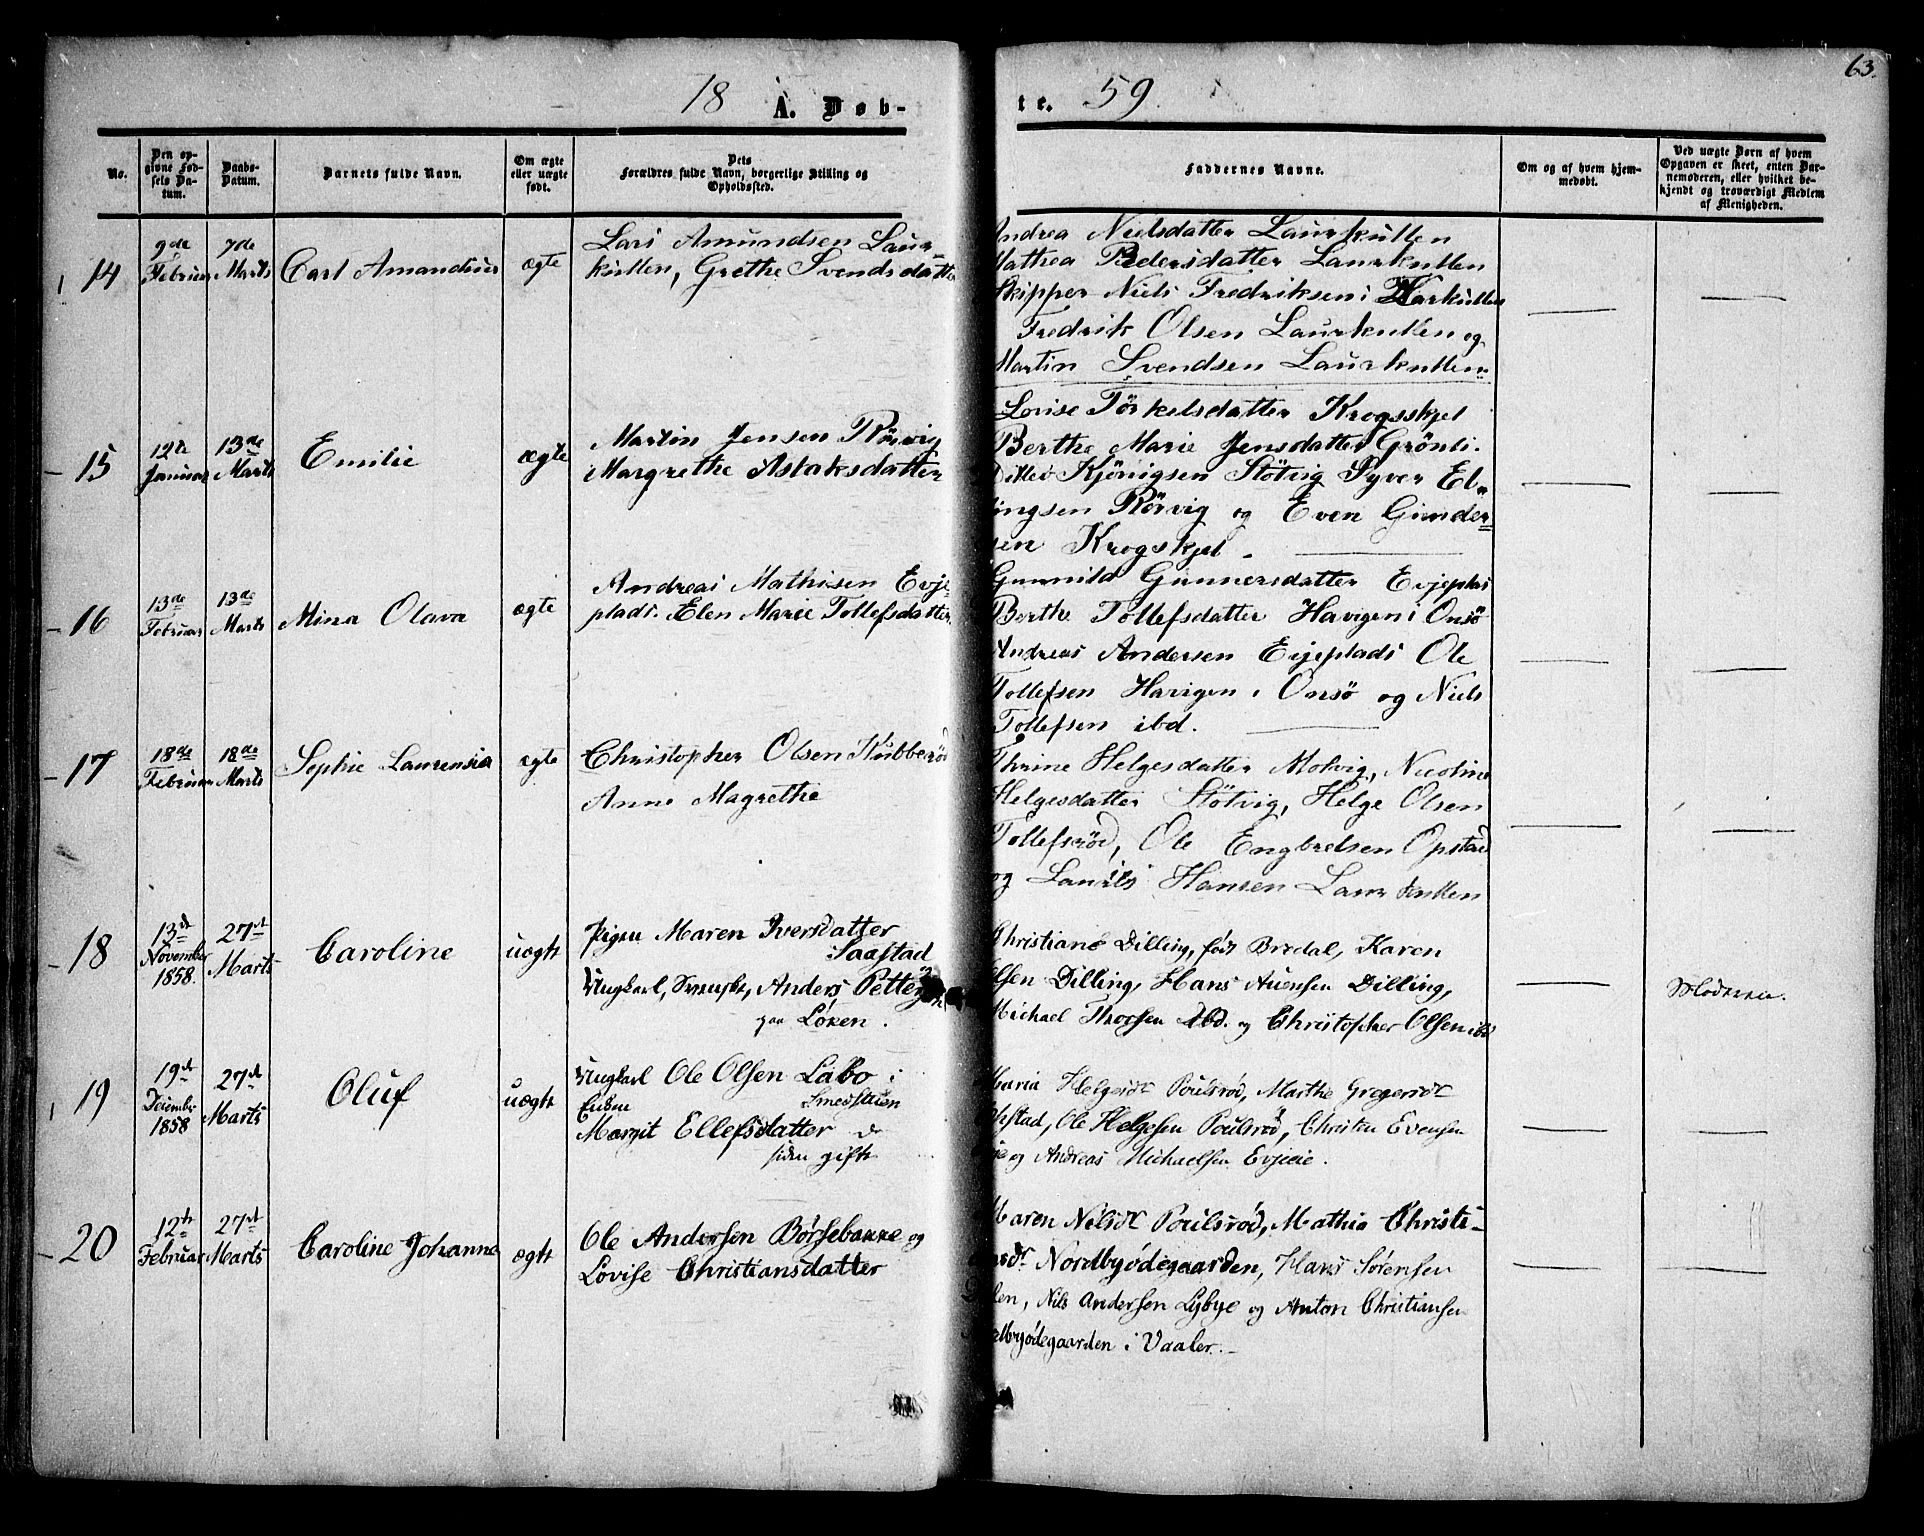 63.
18 A. Døb-
te. 59.
No.
Den op-
givne Fød-
sels Da-
tum.
Daabs-
Datum.
Barnets fulde Navn.
Om ægte
eller uægte
født.
Dets
Forældres fulde Navn, borgerlige Stilling og
Opholdssted.
Faddernes Navne.
Om og af hvem hjem-
medøbt.
Ved uægte Børn af hvem
Opgaven er skeet, enten Bar-
nemoderen, eller hvilket be-
kjendt og troværdigt Medlem
af Menigheden.
14
9de
Februar
7de
Marts
Carl Amandius
ægte
Lars Amundsen Laur-
kullen, Grethe Svendsdatter
Andrea Nielsdatter Laurkullen
Mathea Pedersdatter Laurkullen
Skipper Niels Fredriksen i Larkullen
Fredrik Olsen Laurkullen og
Martin Svendsen Laurkullen
15
12te
Januar
13de
Marts
Emilie
ægte
Martin Jensen Rörvig
Margrethe Aslaksdatter
Lovise Törkelsdatter Krogsskjel
Berthe Marie Jensdatter Grönli.
Ditlev Kjönigsen Stötvig Syver El-
ingsen Rörvig og Even Gunder-
sen Krogskjel
16
13de
Februar
13de
Marts
Mina Olava
ægte
Andreas Mathisen Evje-
plads. Elen Marie Tollefsdatter
Gunnild Gunnersdatter Evjeplads
Berthe Tollefsdatter Havigen i Onsö
Andreas Andersen Evjeplads Ole
Tollefsen Havigen i Onsö og Niels
Tollefsen ibd.
17
18de
Februar
18de
Marts
Sophie Laurensia
ægte
Christopher Olsen Kubberöd
Anne Magrethe
Thrine Helgesdatter Molvig, Nicoline
Helgesdatter Stötvig, Helge Olsen
Tollefsröd, Ole Engbretsen Opstad
og Laurits Hansen Laurkullen
18
13de
November
1858.
27de
Marts
Caroline
uægte
Pigen Maren Iversdatter
Saastad
Ungkarl, Svenske, Anders Petters
paa Løken.
Christiane Dilling, født Bredal, Karen
Olsen Dilling, Hans Auensen Dilling,
Michael Thorsen ibd. og Christopher Olsen ibd
Moderen.
19
19de
Decembr
1858
27de
Marts
Oluf
uægte
Ungkarl Ole Olsen Labo i
Smedstuen
Enken
Margit Ellefsdatter
siden gift
Maria Helgesdr Poulsrød, Marthe Gregersdr
Opstad, Ole Helgesen Poulsrød, Christen Evensen
og Andreas Michaelsen Evjeeie.
20
12te
Februar
27de
Marts
Caroline Johanne
ægte
Ole Andersen Børsebakke og
Lovise Christiansdatter
Maren Nilsdr Poulsrød, Mathia Christi-
ansdr Nordbyødegaarden, Hans Sørensen
Nils Andersen Lybye og Anton Christiansen
Nordbyødegaarden i Vaaler.